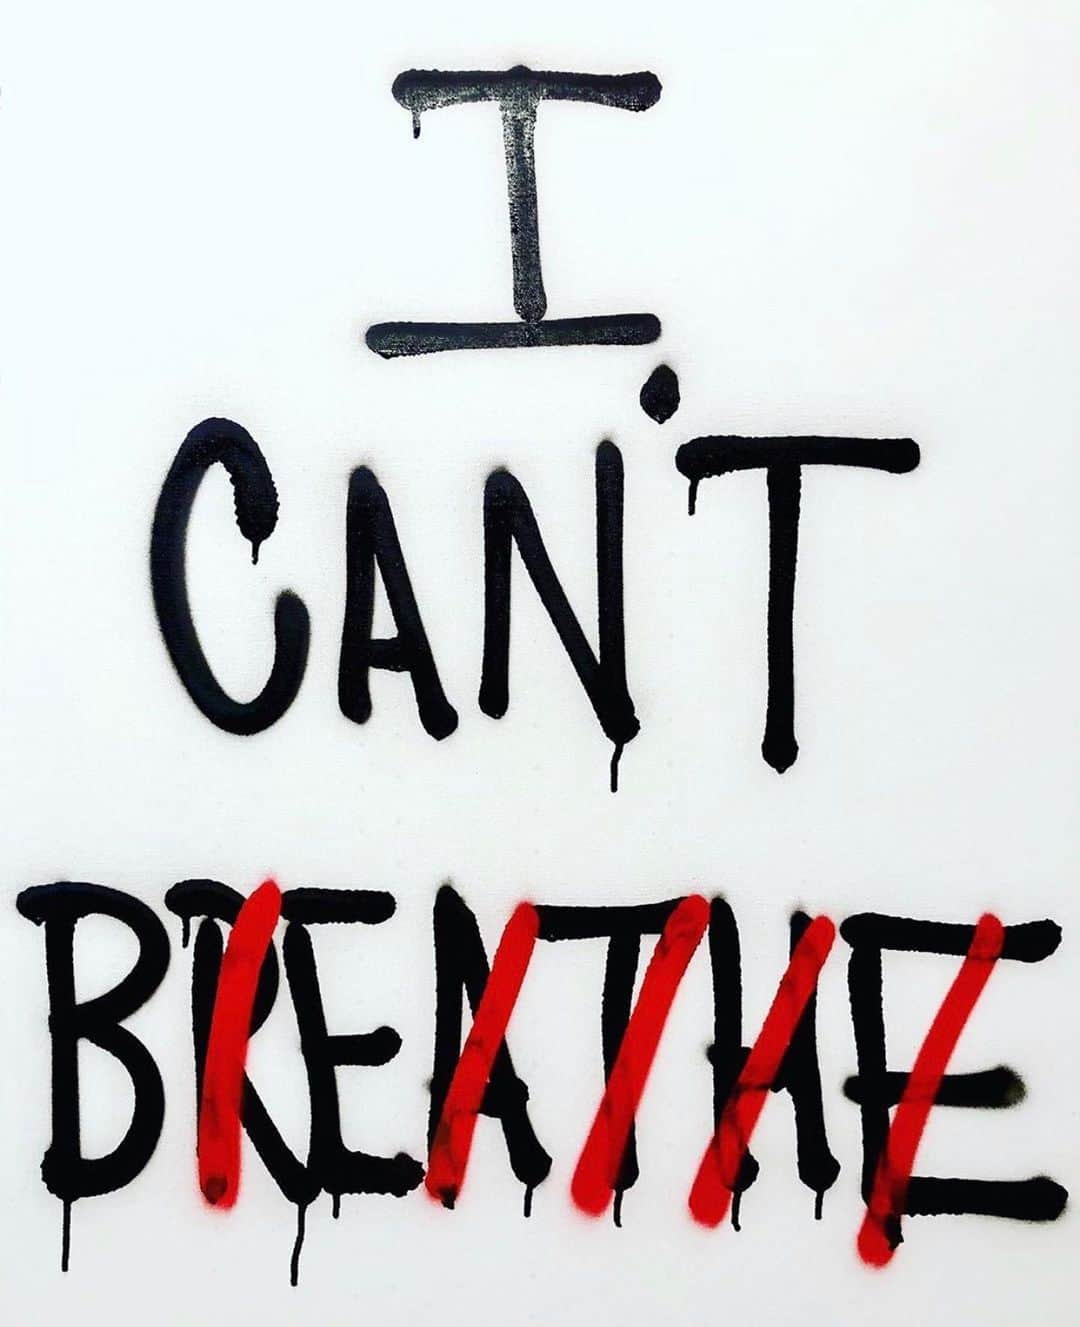 I
CAN'T
BREATHE